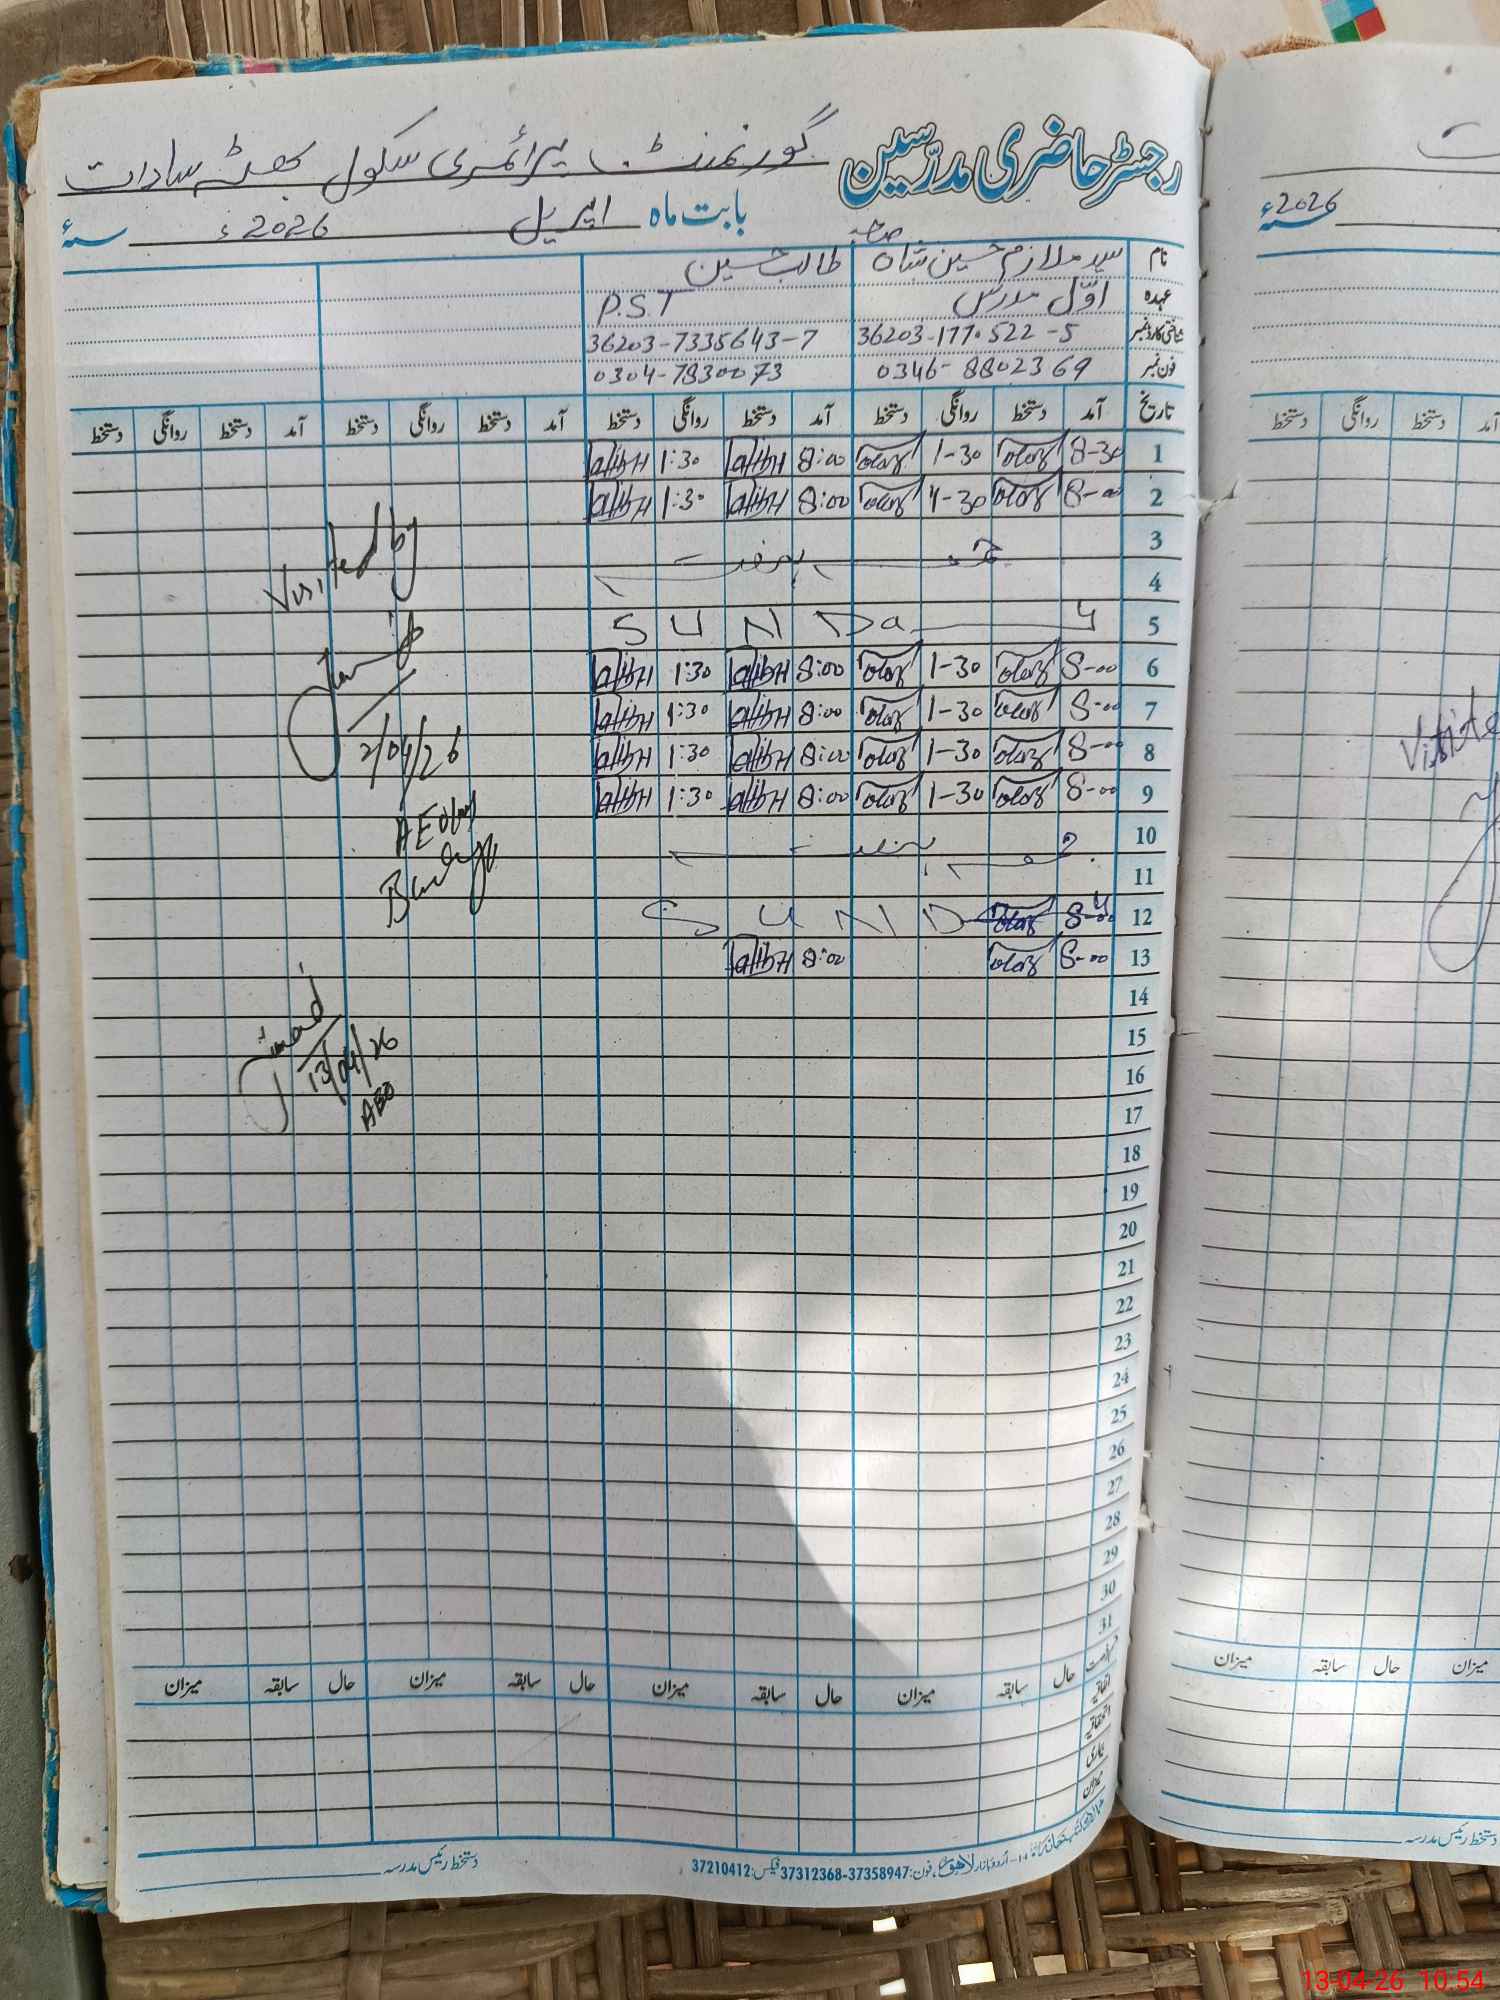 رجسٹر حاضری مدرّسین گورنمنٹ پرائمری سکول بھٹہ سادات
بابت ماہ اپریل 2026ء سنہٴ
نام سید ملازم حسین شاہ طالب حسین
عہدہ اوّل مدرس P.S.T
شناختی کارڈ نمبر 36203-1770522-5 36203-7335643-7
فون نمبر 0346-8802369 0304-7830073
تاریخ آمد دستخط روانگی دستخط آمد دستخط روانگی دستخط آمد دستخط روانگی دستخط آمد دستخط روانگی دستخط
1 8-30 1-30 8:00 TalibH 1:30 TalibH
2 8-00 1-30 8:00 TalibH 1:30 TalibH
3
4
5 SUNDay
6 8-00 1-30 8:00 TalibH 1:30 TalibH
7 8-00 1-30 8:00 TalibH 1:30 TalibH
8 8-00 1-30 8:00 TalibH 1:30 TalibH
9 8-00 1-30 8:00 TalibH 1:30 TalibH
10
11
12 8-00 SUNDay
13 8-00 8:00 TalibH
14
15
16
17
18
19
20
21
22
23
24
25
26
27
28
29
30
31
Visited by
2/04/26
AEO
13/04/26
AEO
حال سابقہ میزان حال سابقہ میزان حال سابقہ میزان حال سابقہ میزان
اتفاقیہ
بیماری
میزان
دستخط رئیس مدرسہ
اردو بازار لاہور، فون: 37358947-37312368 فیکس: 37210412
2026 سنہٴ
آمد دستخط روانگی دستخط
میزان حال سابقہ میزان
دستخط رئیس مدرسہ
13-04-26 10:54